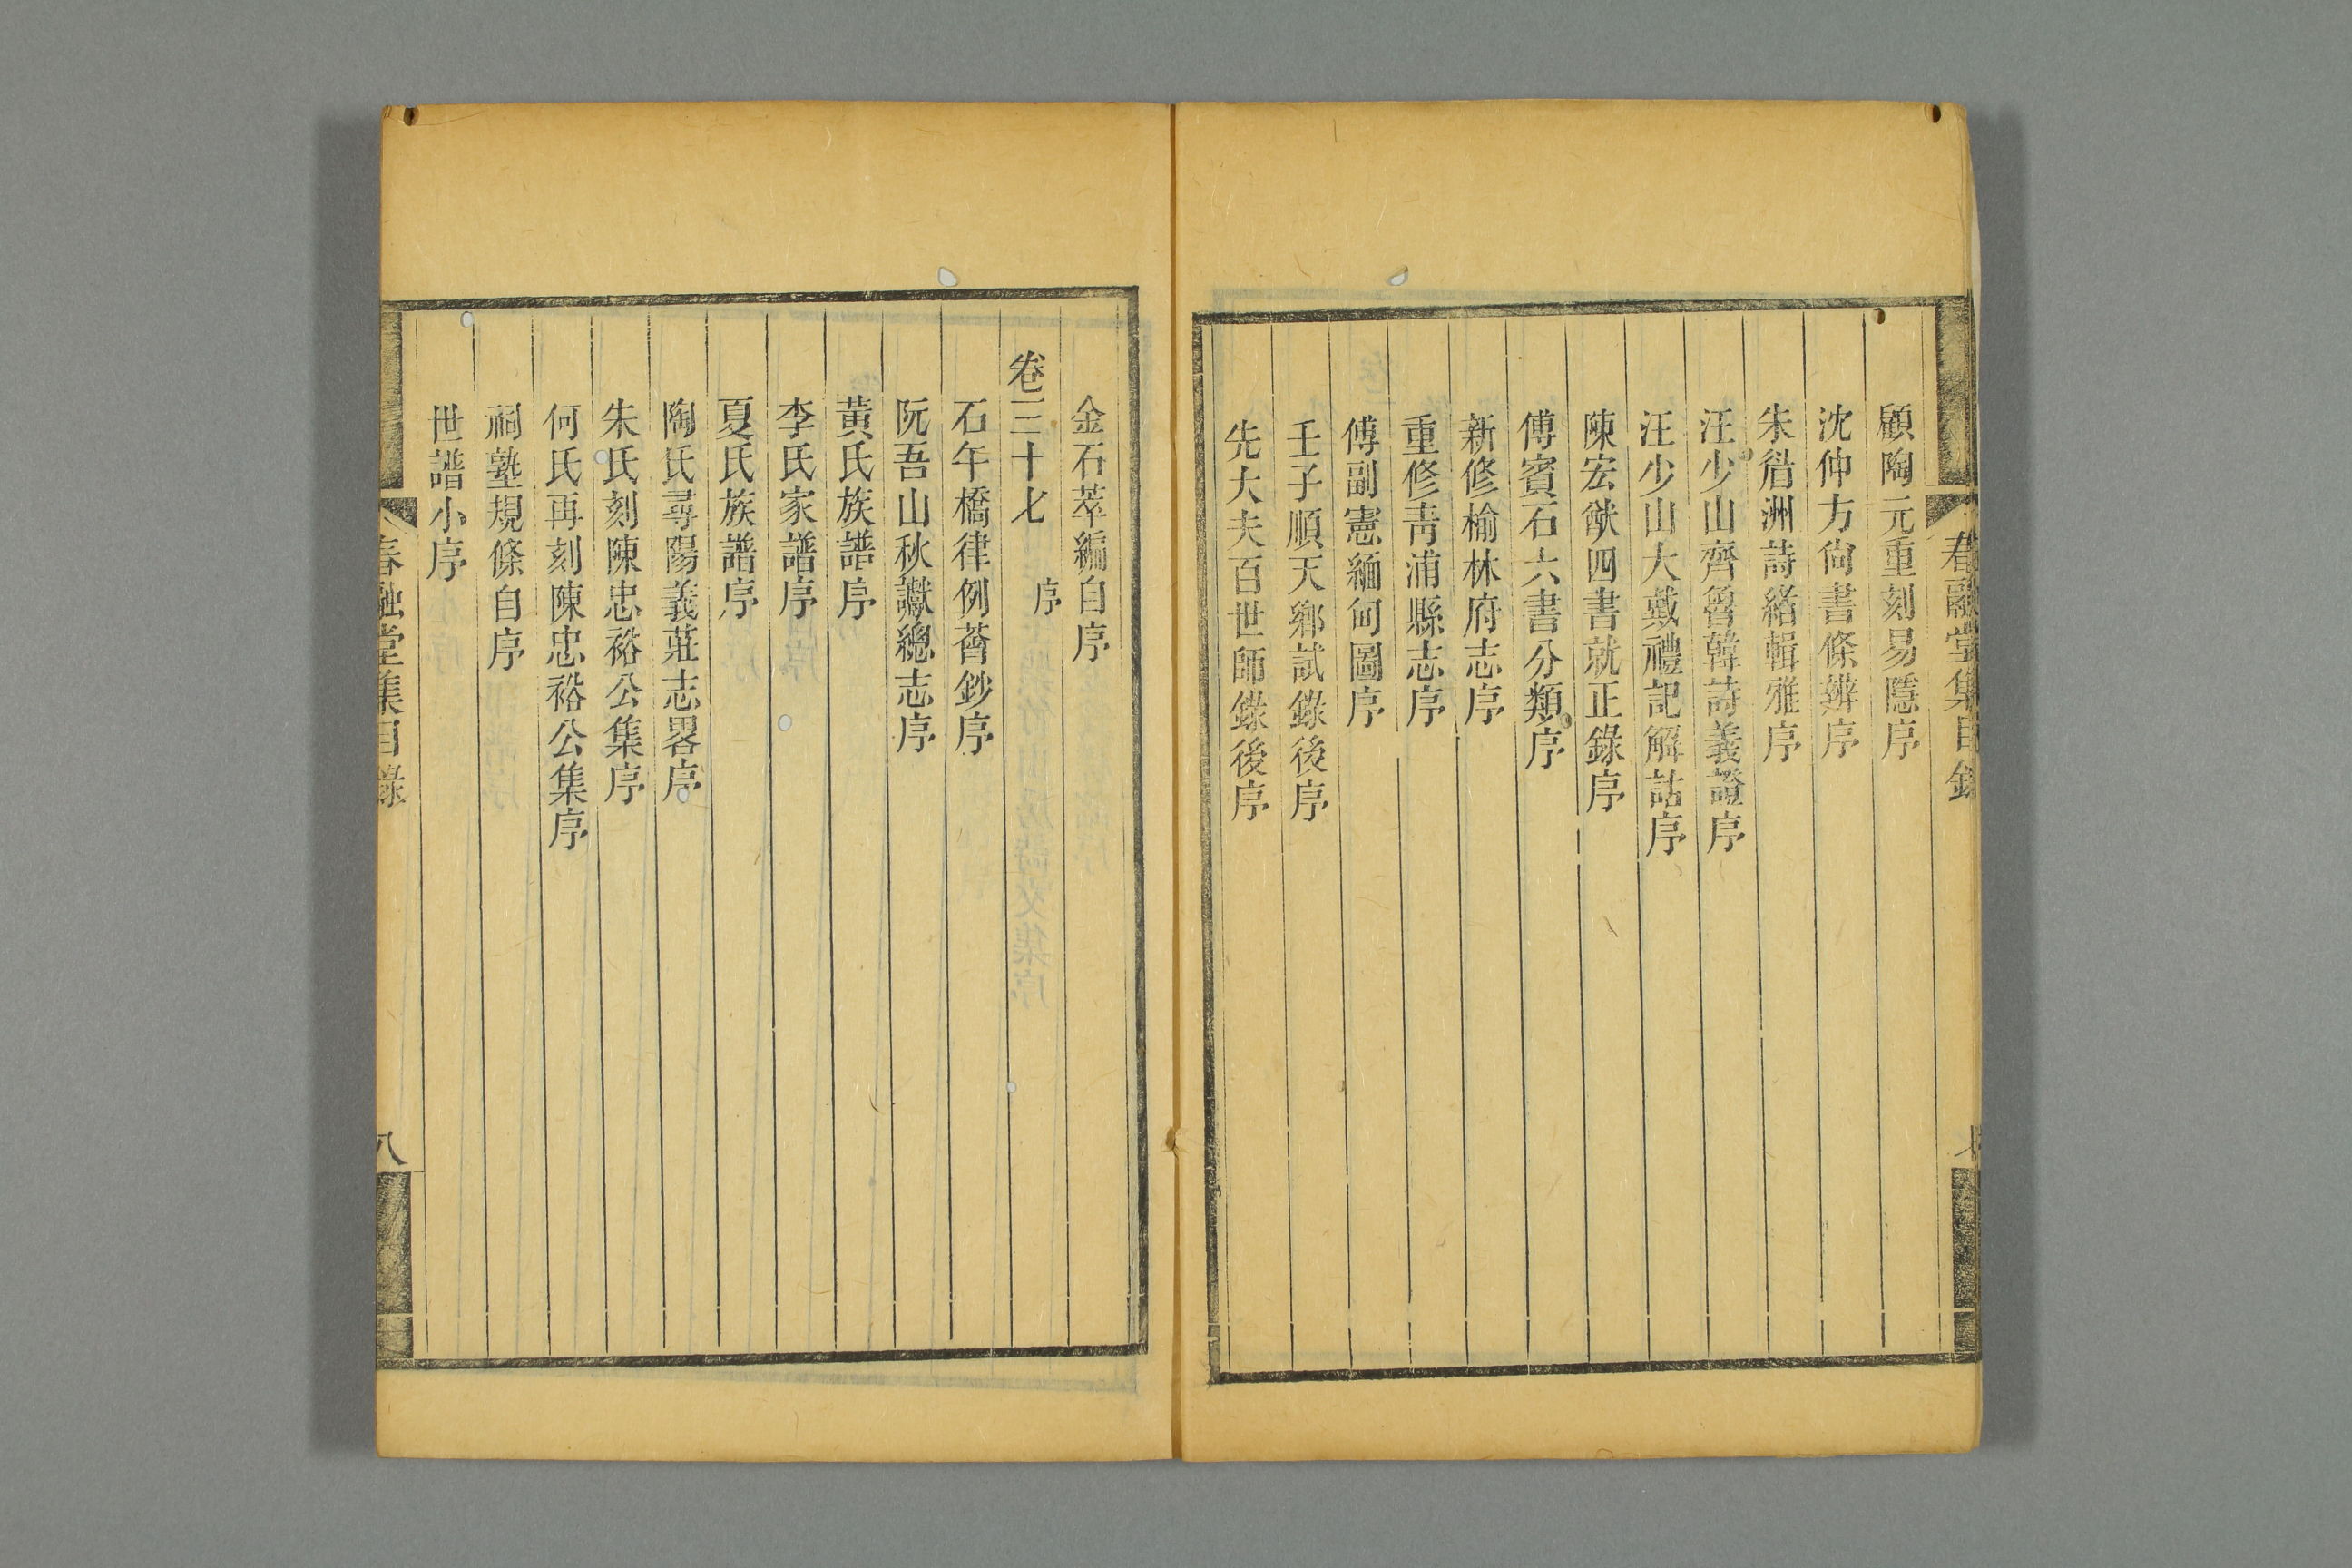 春融堂集目錄
七
顧陶元重刻易隱序
沈仲方尙書條辨序
朱㳙洲詩緒輯雅序
汪少山齊魯韓詩義證序
汪少山大戴禮記解詁序
陳宏猷四書就正錄序
傅賓石六書分類序
新修榆林府志序
重修靑浦縣志序
傅副憲緬甸圖序
壬子順天鄉試錄後序
先大夫百世師錄後序
金石萃編自序
卷三十七 序
石午橋律例薈鈔序
阮吾山秋讞總志序
黃氏族譜序
李氏家譜序
夏氏族譜序
陶氏尋陽義莊志畧序
朱氏刻陳忠裕公集序
何氏再刻陳忠裕公集序
祠塾規條自序
世譜小序
春融堂集目錄
八